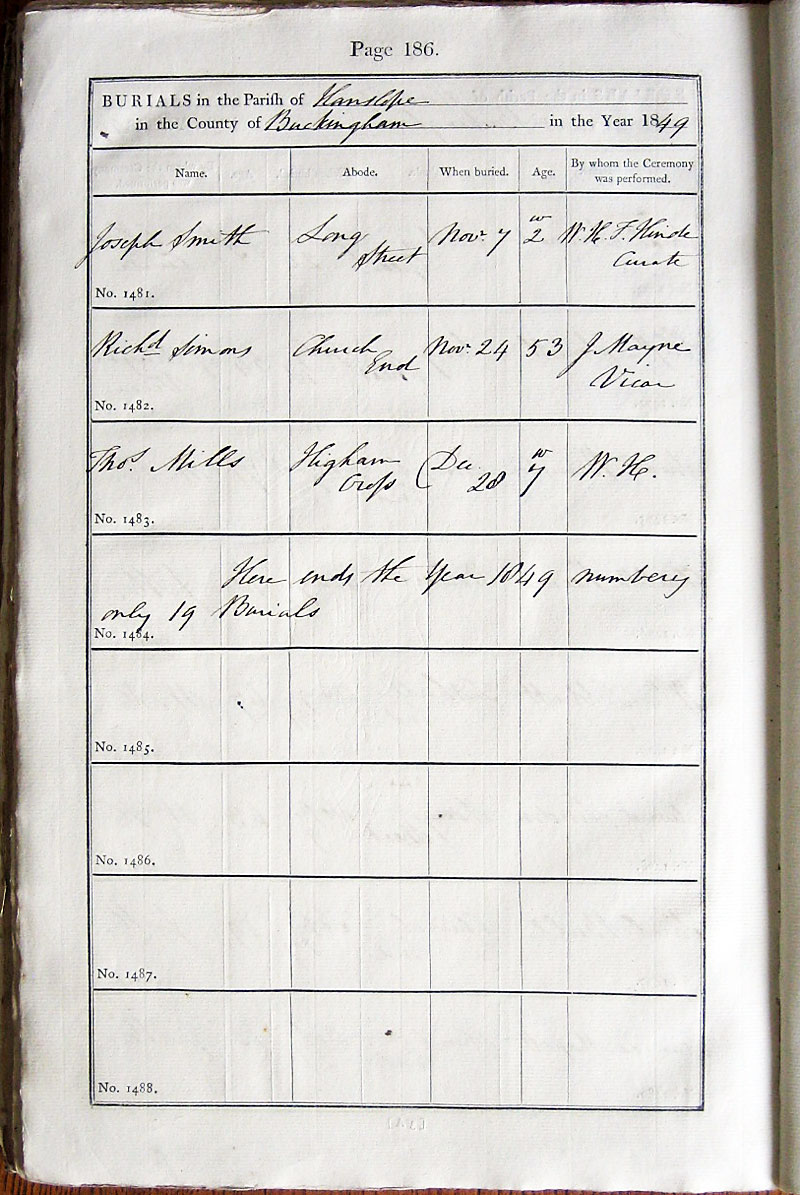 Page 186.
BURIALS in the Pariſh of Hanslope
in the County of Buckingham in the Year 1849
Name. Abode. When buried. Age. By whom the Ceremony was performed.
Joseph Smith Long Street Nov. 7 2 w W. H. F. Hinde Curate
No. 1481.
Richd Simons Church End Nov. 24 53 J Mayne Vicar
No. 1482.
Thos. Mills Higham Croſs Dec. 28 7 w W. H.
No. 1483.
Here ends the Year 1849 numbers
only 19 Burials
No. 1484.
No. 1485.
No. 1486.
No. 1487.
No. 1488.